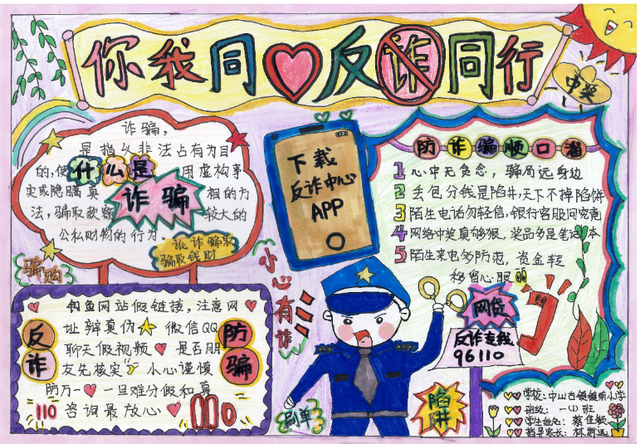 你我同 反诈同行
中奖
诈骗,
是指以非法占有为目
的,使 用虚构事
什么是
实或隐瞒真 相的方
诈骗
法,骗取款额 较大的
公私财物的行为
谨诈骗取
骗取钱财
骗购
下载
反诈中心
APP
小心有诈
防诈骗顺口溜
1 心中无贪念,骗局远身边
2 丢包分钱是陷井,天下不掉馅饼
3 陌生电话勿轻信,银行客服问究竟
4 网络中奖真够狠,奖品多是笔记本
5 陌生来电多防范,资金轻
移留心眼
反诈
防骗
钓鱼网站假链接,注意网
址辩真伪 微信QQ
聊天假视频 是否朋
友先核实 小心谨慎
防万一 一旦难分假和真
110 咨询最放心 110
刷单
网贷
反诈专线
96110
陷井
学校:中山古镇镇南小学
班级:一(1)班
学生姓名:蔡佳颖
指导家长:林